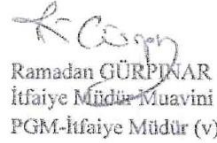 Ramadan GÜRPINAR
İtfaiye Müdür Muavini
PGM-İtfaiye Müdür (v)